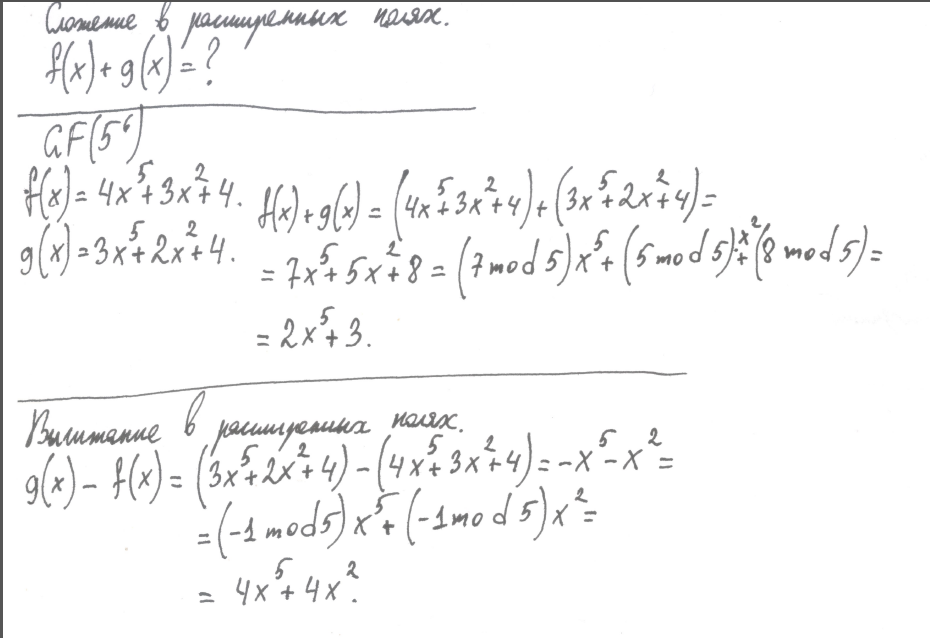 Сложение в расширенных полях.
f(x) + g(x) = ?
GF(5⁶)
f(x) = 4x⁵ + 3x² + 4.
g(x) = 3x⁵ + 2x² + 4.
f(x) + g(x) = (4x⁵ + 3x² + 4) + (3x⁵ + 2x² + 4) =
= 7x⁵ + 5x² + 8 = (7 mod 5)x⁵ + (5 mod 5)x² + (8 mod 5) =
= 2x⁵ + 3.
Вычитание в расширенных полях.
g(x) - f(x) = (3x⁵ + 2x² + 4) - (4x⁵ + 3x² + 4) = -x⁵ - x² =
= (-1 mod 5)x⁵ + (-1 mod 5)x² =
= 4x⁵ + 4x².